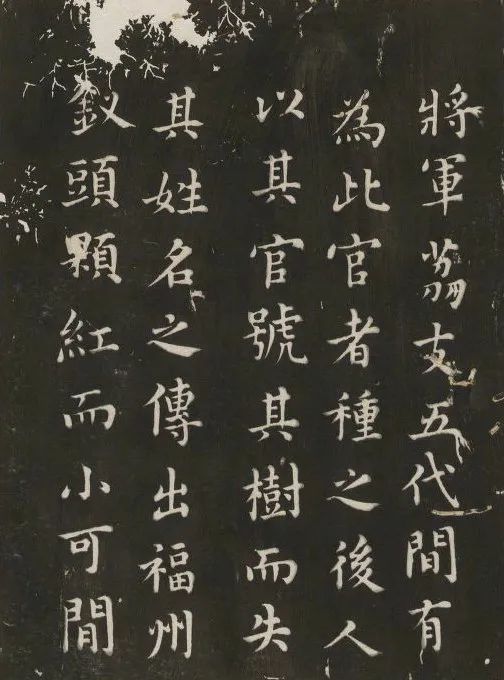 將軍荔支五代間有
為此官者種之後人
以其官號其樹而失
其姓名之傳出福州
釵頭顆紅而小可間